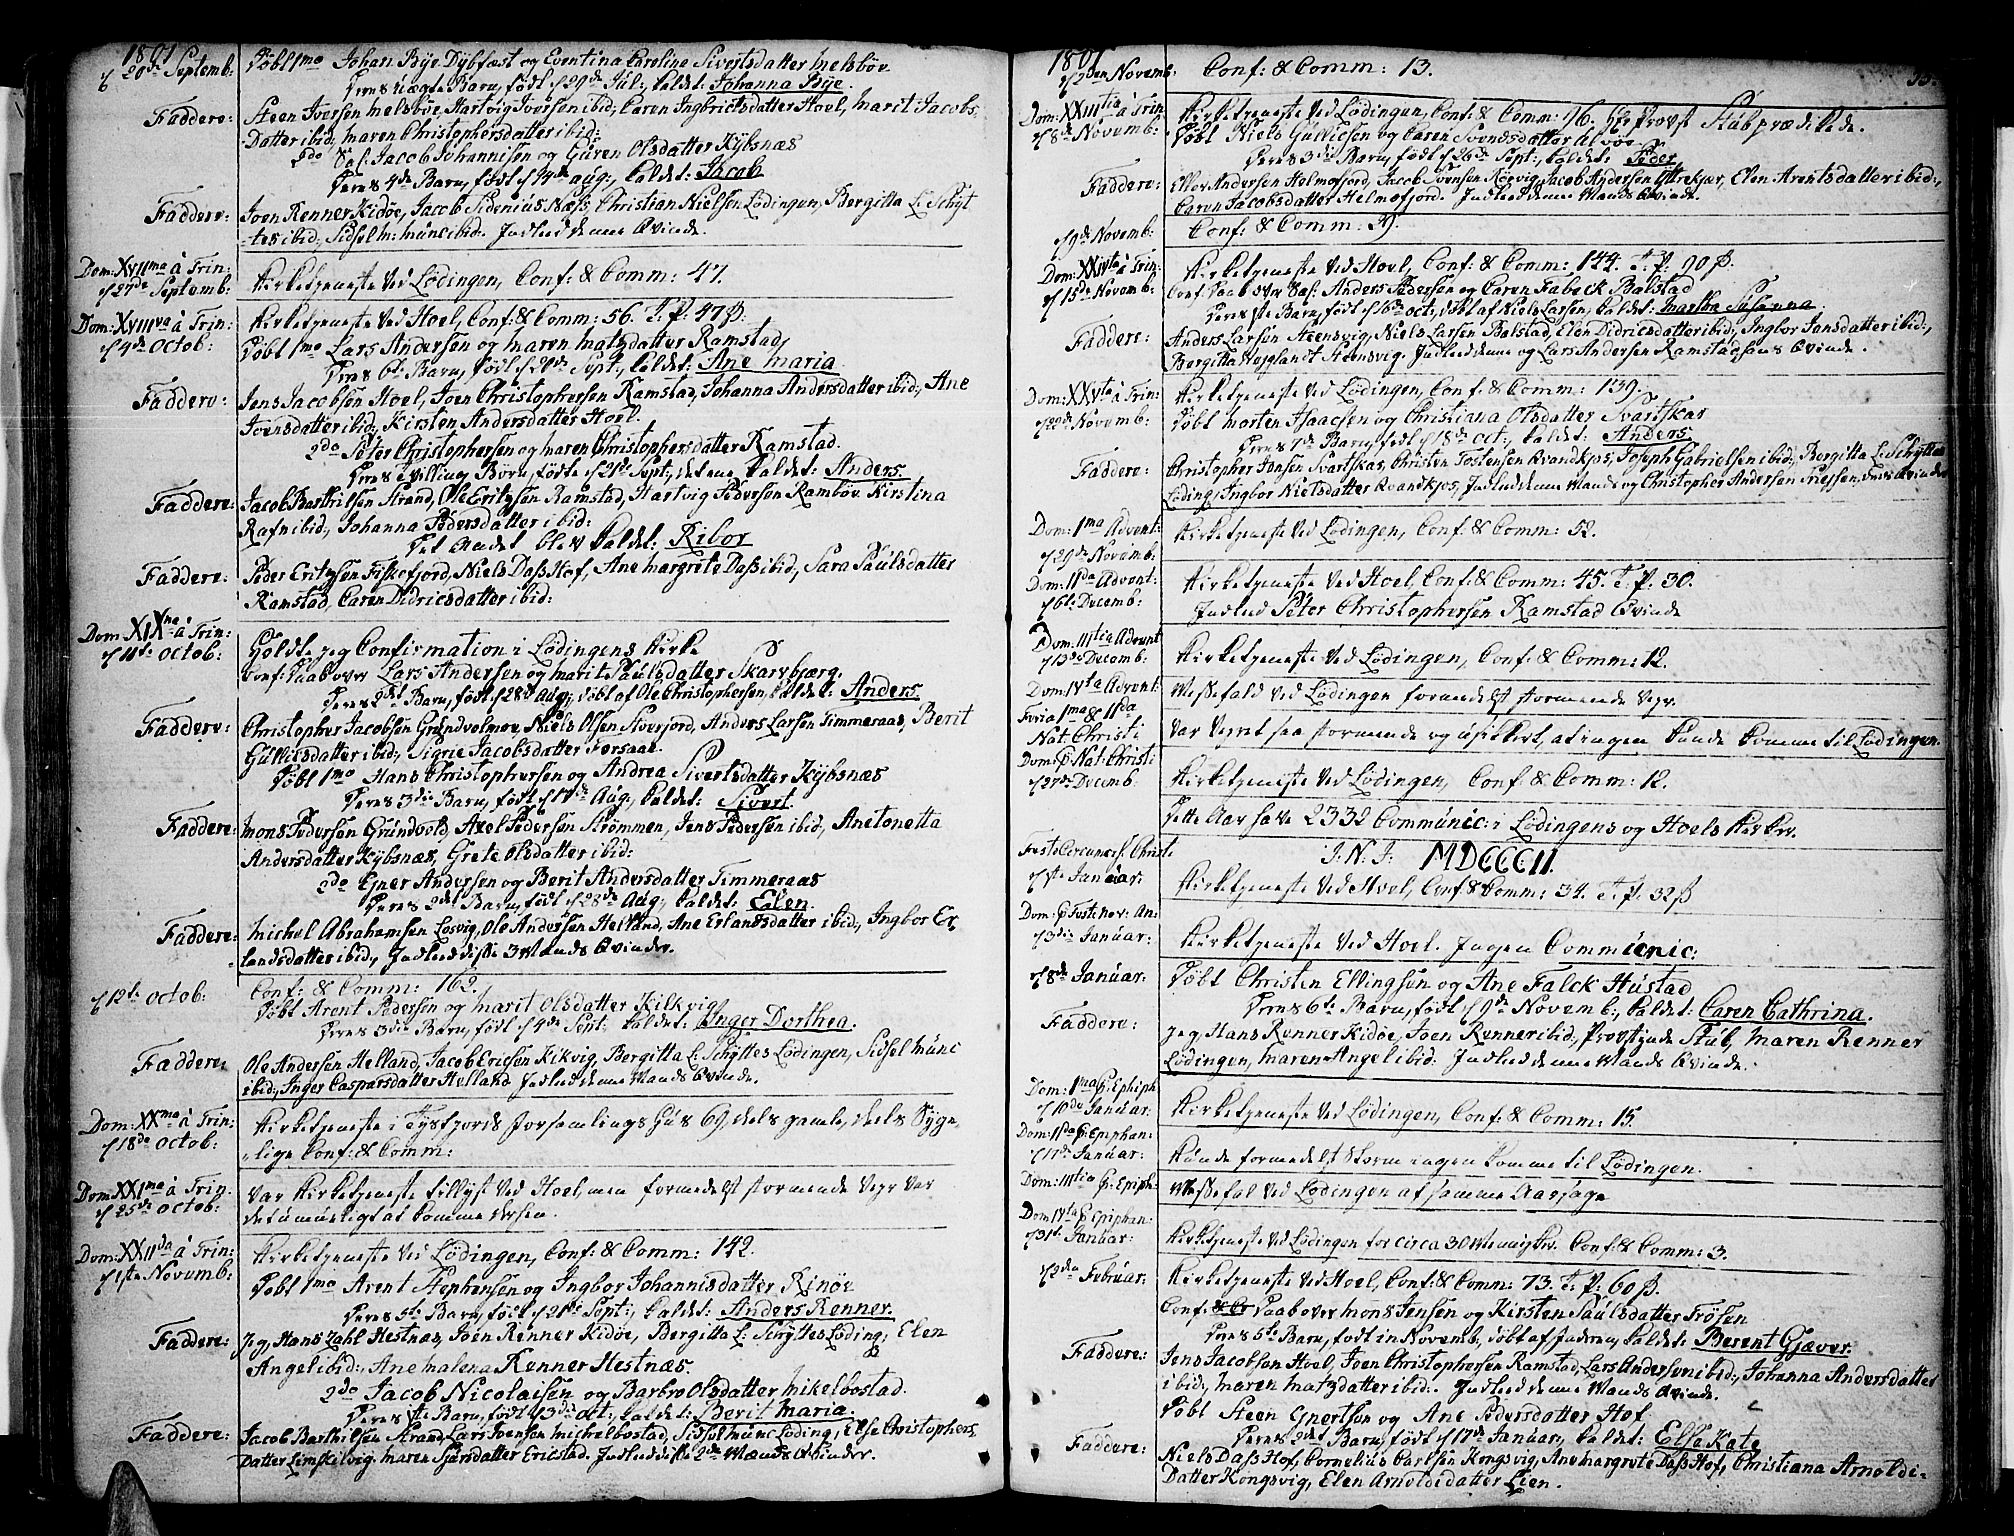 1801
d 20de Septemb: Döbt 1mo Johan Bye Dybfæst og Eventina Carolina Sivertsdatter Melsböe
Deres uægte Barn, födt d 29de Jul: kaldet: Johanna Bye.
Faddere: Steen Iversen Melsböe, Hartvig Iversen ibid:, Caren Ingbrictsdatter Hoel, Marit Jacobs
Datter ibid:, Maren Christophersdatter ibid:
2do Jacob Johannisen og Guren Olsdatter Kybsnæs
Deres 4de Barn, födt d 14de Aug:, kaldet: Jacob
Faddere: Joen Renner Kidöe, Jacob Sidenius Næss, Christian Nielsen Lödingen, Bergitta L: Schyt
tes ibid:, Sidsel M: Munc ibid: Indled denne Qvinde.
Dom: XVIIma à Trin: d 27de Septemb: Kirketjeneste ved Lödingen, Conf: & Comm: 47.
Dom: XVIIIva à Trin: d 4de Octob: Kirketjeneste ved Hoel, Conf: & Comm: 56. T. P. 47 ß.
Döbt 1mo Lars Andersen og Maren Matzdatter Ramstad,
Deres 6te Barn, födt d 20de Sept:, kaldet: Ane Maria
Faddere: Jens Jacobsen Hoel, Joen Christophersen Ramstad, Johanna Andersdatter ibid:, Ane
Joensdatter ibid:, Kirsten Andersdatter Hoel.
2do Peter Christophersen og Maren Christophersdatter Ramstad.
Deres Tvilling Börn, födte d 21de Sept:, det ene kaldet: Anders.
Faddere: Jacob Barthilsen Strand, Ole Eritzsen Ramstad, Hartvig Pedersen Ramböe, Kirstina
Rafn ibid:, Johanna Pedersdatter ibid:
Det andet blev kaldet: Ribor
Faddere: Peder Eritzsen Fiskefjord, Niels Dass Hof, Ane Margrete Dass ibid:, Sara Paulsdatter
Ramstad, Caren Didricsdatter ibid:
Dom: XIXna à Trin: d 11te Octob: Holdte jeg Confirmation i Lödingens Kirke
Conf: Daab over Lars Andersen og Marit Paulsdatter Skarvbjerg,
Deres 2det Barn, födt d 28de Aug:, döbt af Ole Christophersen, kaldet: Anders.
Faddere: Christopher Jacobsen Grundvolmoe, Niels Olsen Stverfjord, Anders Larsen Timmeraas, Berit
Gullicsdatter ibid:, Sigrie Jacobsdatter Forsaae.
Döbt 1mo Hans Christophersen og Andrea Sivertsdatter Kybsnæs
Deres 3die Barn, födt d 17de Aug:, kaldet: Sivert.
Faddere: Mons Pedersen Grundvold, Axel Pedersen Strömmen, Jens Pedersen ibid:, Anetonetta
Andersdatter Kybsnæs, Grete Olsdatter ibid:
2do Ejner Andersen og Berit Andersdatter Timmeraas
Deres 2det Barn, födt d 28de Aug:, kaldet: Elen.
Faddere: Michel Abrahamsen Losvig, Ole Andersen Helland, Ane Erlandsdatter ibid:, Ingbor Er,
landsdatter ibid:, Indled disse 3 Mænds Qvinder.
d 12te Octob: Conf: & Comm: 162.
Döbt Arent Pedersen og Marit Olsdatter Kilkvig,
Deres 3die Barn, födt d 4de Sept: kaldet: Inger Dorthea.
Faddere: Ole Andersen Helland, Jacob Ericsen Kikvig, Bergitta L: Schyttes Lödingen, Sidsel Munc
ibid:, Inger Caspersdatter Helland. Indled denne Mands Qvinde.
Dom: XXma à Trin: d 18de Octob: Kirketjeneste i Tysfjords Forsamlings Huus 69, deels gamle, deels Syge,
lige Conf: & Comm:
Dom: XXIma à Trin: d 25de Octob: Var Kirketjeneste tillyst ved Hoel, men formedelst stormende Vejr var
det umueligt at komme dersen.
Dom: XXIIda à Trin: d 1ste Novemb: Kirketjeneste ved Lödingen, Conf: & Comm: 142.
Döbt 1mo Arent Stephensen og Ingbor Johannisdatter Rinöe
Deres 5te Barn, födt d 21de Sept:, kaldet: Anders Renner.
Faddere: Jeg, Hans Zahl Hestnæs, Joen Renner Kidöe, Bergitta L: Scyttes Löding:, Elen
Angel ibid:, Ane Malena Renner Hestnæs.
2do Jacob Nicolaisen og Barbro Olsdatter Mikelbostad.
Deres 1ste Barn, födt d 3die Oct:, kaldet: Berit Maria.
Faddere: Jacob Barthilsen Strand, Lars Ivensen Michelbostad, Sidsel Munc Löding:, Else Christophers
Datter Limskilvig, Maren Sjursdatter Ericstad. Indled disse 2de Mænds Qvinder.
1801 15
d 2den Novemb: Conf: & Comm: 13.
Dom: XXIIItia à Trin d 8de Novemb: Kirketjeneste ved Lödingen, Conf: & Comm: 96. Hr Provst Stub prædikede.
Döbt Niels Gullicsen og Caren Svendsdatter Alvoe
Deres 3die Barn, födt d 26de Sept:, kaldet: Peder
Faddere: Ellev Andersen Helmofjord, Jacob Svensen Röevig, Jacob Andersen Otterekjær, Elen Arentsdatter ibid:,
Caren Jacobsdatter Helmofjord. Indled denne Mands Qvinde.
d 9de Novemb: Conf: & Comm. 39.
Dom: XXIVta à Trin: d 15de Novemb: Kirketjeneste ved Hoel, Conf: & Comm: 144. T. P. 90 ß.
Conf. Daab over Anders Pedersen og Caren Fabeck Balstad
Deres 1ste Barn, födt d 16de Oct:, döbt af Niels Larsen, kaldet: Martha Susanna
Faddere: Anders Larsen Steensvig, Niels Larsen Balstad, Elen Didricsdatter ibid:, Ingbor Jansdatter ibid:,
Bergitta Steensvig. Indled denne og Lars Andersen Ramstad hans Qvinde.
Dom: XXVta à Trin: d 22de Novemb: Kirketjeneste ved Lödingen, Conf: & Comm: 139.
Döbt Morten Isaacsen og Christiana Olsdatter Svartskar
Deres 7de Barn, födt d 18de Oct:, kaldet: Anders
Faddere: Christopher Jonsen Svartskar, Christen Tostensen Kvandkjos, Joseph Gabrielsen ibid:, Bergitta L: Schyttes
Löding:, Ingbor Nielsdatter Kvandkjos, Indled denne Mands og Christopher Andersen Qvinder
Dom: 1ma Advent: d 29de Novemb: Kirketjeneste ved Lödingen, Conf: & Comm: 52.
Dom: IIda Advent: d 6te Decemb: Kirketjeneste ved Hoel, Conf: & Comm: 45. T. P. 30.
Indled Peter Christophersen Ramstad Qvinde
Dom: IIItia Advent d 13de Decemb: Kirketjeneste ved Lödingen, Conf: & Comm: 12.
Dom: IVta Advent: Messefald ved Lödingen formedelst stormende Vejr.
Feria 1ma & IIda Nat: Christi Var Vejret saa stormende og usikkert, at ingen kunde komme til Lödingen.
Dom: p: Nat: Christi d 27de Decemb: Kirketjeneste ved Lödingen, Conf: & Comm: 12.
Dette Aar have 2332 Communic: i Lödingens og Hoels Kirker.
I. N. J. MDCCCII.
Fest: Circumcis: Christi d 1ste Januar: Kirketjeneste ved Hoel, Conf & Comm: 34. T. P. 32 ß
Dom: p Fest: nov: An: d 3die Januar: Kirketjeneste ved Hoel. Ingen Communic:
d 8de Januar: Döbt Christen Ellingsen og Ane Falck Hustad
Deres 6te Barn, födt d 9de Novemb:, kaldet: Caren Cathrina.
Faddere: Jeg, Hans Renner Kidöe, Joen Renner ibid:, Provstinde Stub, Maren Renner
Lödingen, Maren Angel ibid: Indled denne Mands Qvinde.
Dom: 1ma p. Epiph. d 10de Januar: Kirketjeneste ved Lödingen, Conf: & Comm: 15.
Dom: IIda p. Epiphan: d 17de Januar: Kunde formedelst Storm ingen komme til Lödingen.
Dom: IIItia p. Epiph: Messefal ved Lödingen af samme Aarsage
Dom: IVta p Epiphan: d 31te Januar: Kirketjeneste ved Lödingen for circa 30 Mennisker. Conf: & Comm: 3.
d 2den Februar: Kirketjeneste ved Hoel, Conf: & Comm: 73. T. P. 60 ß.
Conf: Daab over Mons Jensen og Kirsten Paulsdatter Tröesen
Deres 5te Barn, födt in Novemb:, döbt af Faderen, kaldet: Berent Gjæver.
Faddere: Jens Jacobsen Hoel, Joen Christophersen Ramstad, Lars Andersen ibid:, Johanna Andersdatter
ibid:, Maren Matzdatter ibid:. Indled denne Mands Qvinde.
Döbt Steen Ejnertsen og Ane Pedersdatter Hof
Deres 2det Barn, födt d 17de Januar, kaldet: Else Kate
Faddere: Niels Dass Hof, Cornelius Carlsen Kongsvig, Ane Margrete Dass Hof, Christiana Arnoldi-
Datter Kongsvig, Elen Arnoldidatter Lien.